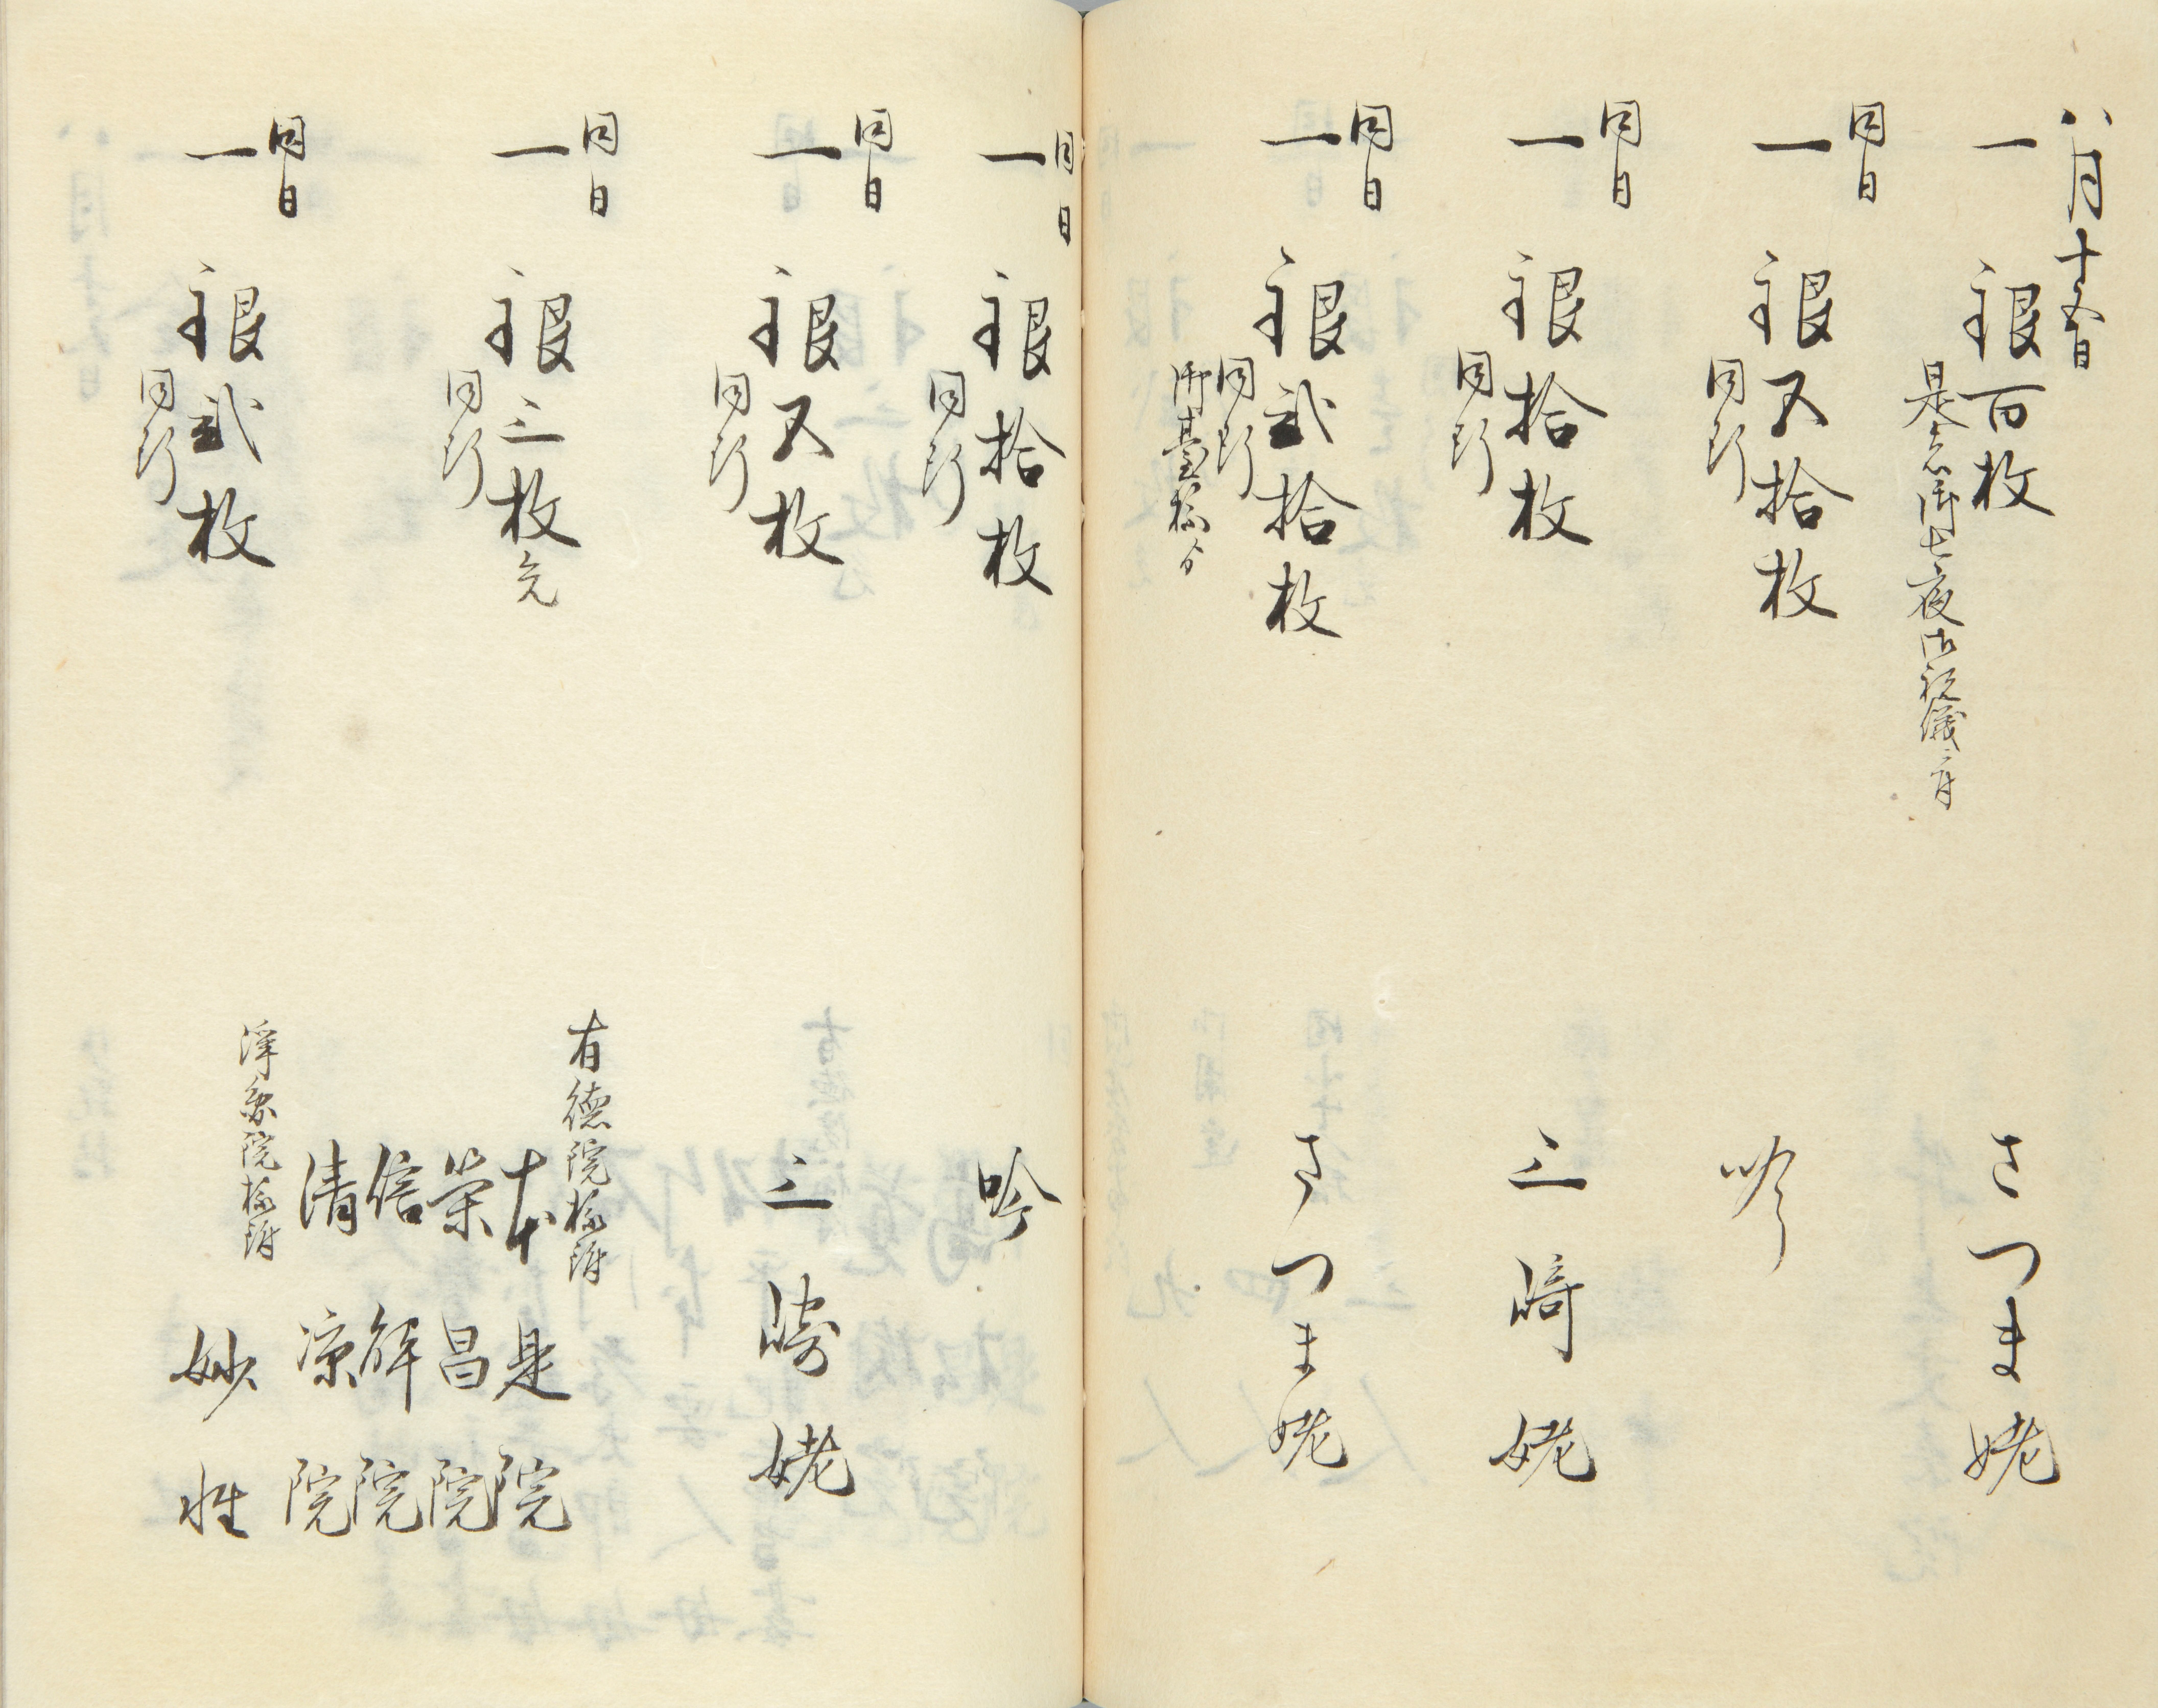 八月十五日
一 銀百枚 さつま姥
是ハ御七夜御祝儀ニ付
同日
一 銀五拾枚 吟
同断
同日
一 銀拾枚 三崎姥
同断
同日
一 銀弐拾枚 さつま姥
同断
御臺様ゟ
同日
一 銀拾枚 吟
同断
同日
一 銀五枚 三崎姥
同断
同日
有徳院様附
一 銀三枚充 本是院
同断
栄昌院
信解院
清凉院
同日
浄圓院様附
一 銀弐枚 妙性
同断